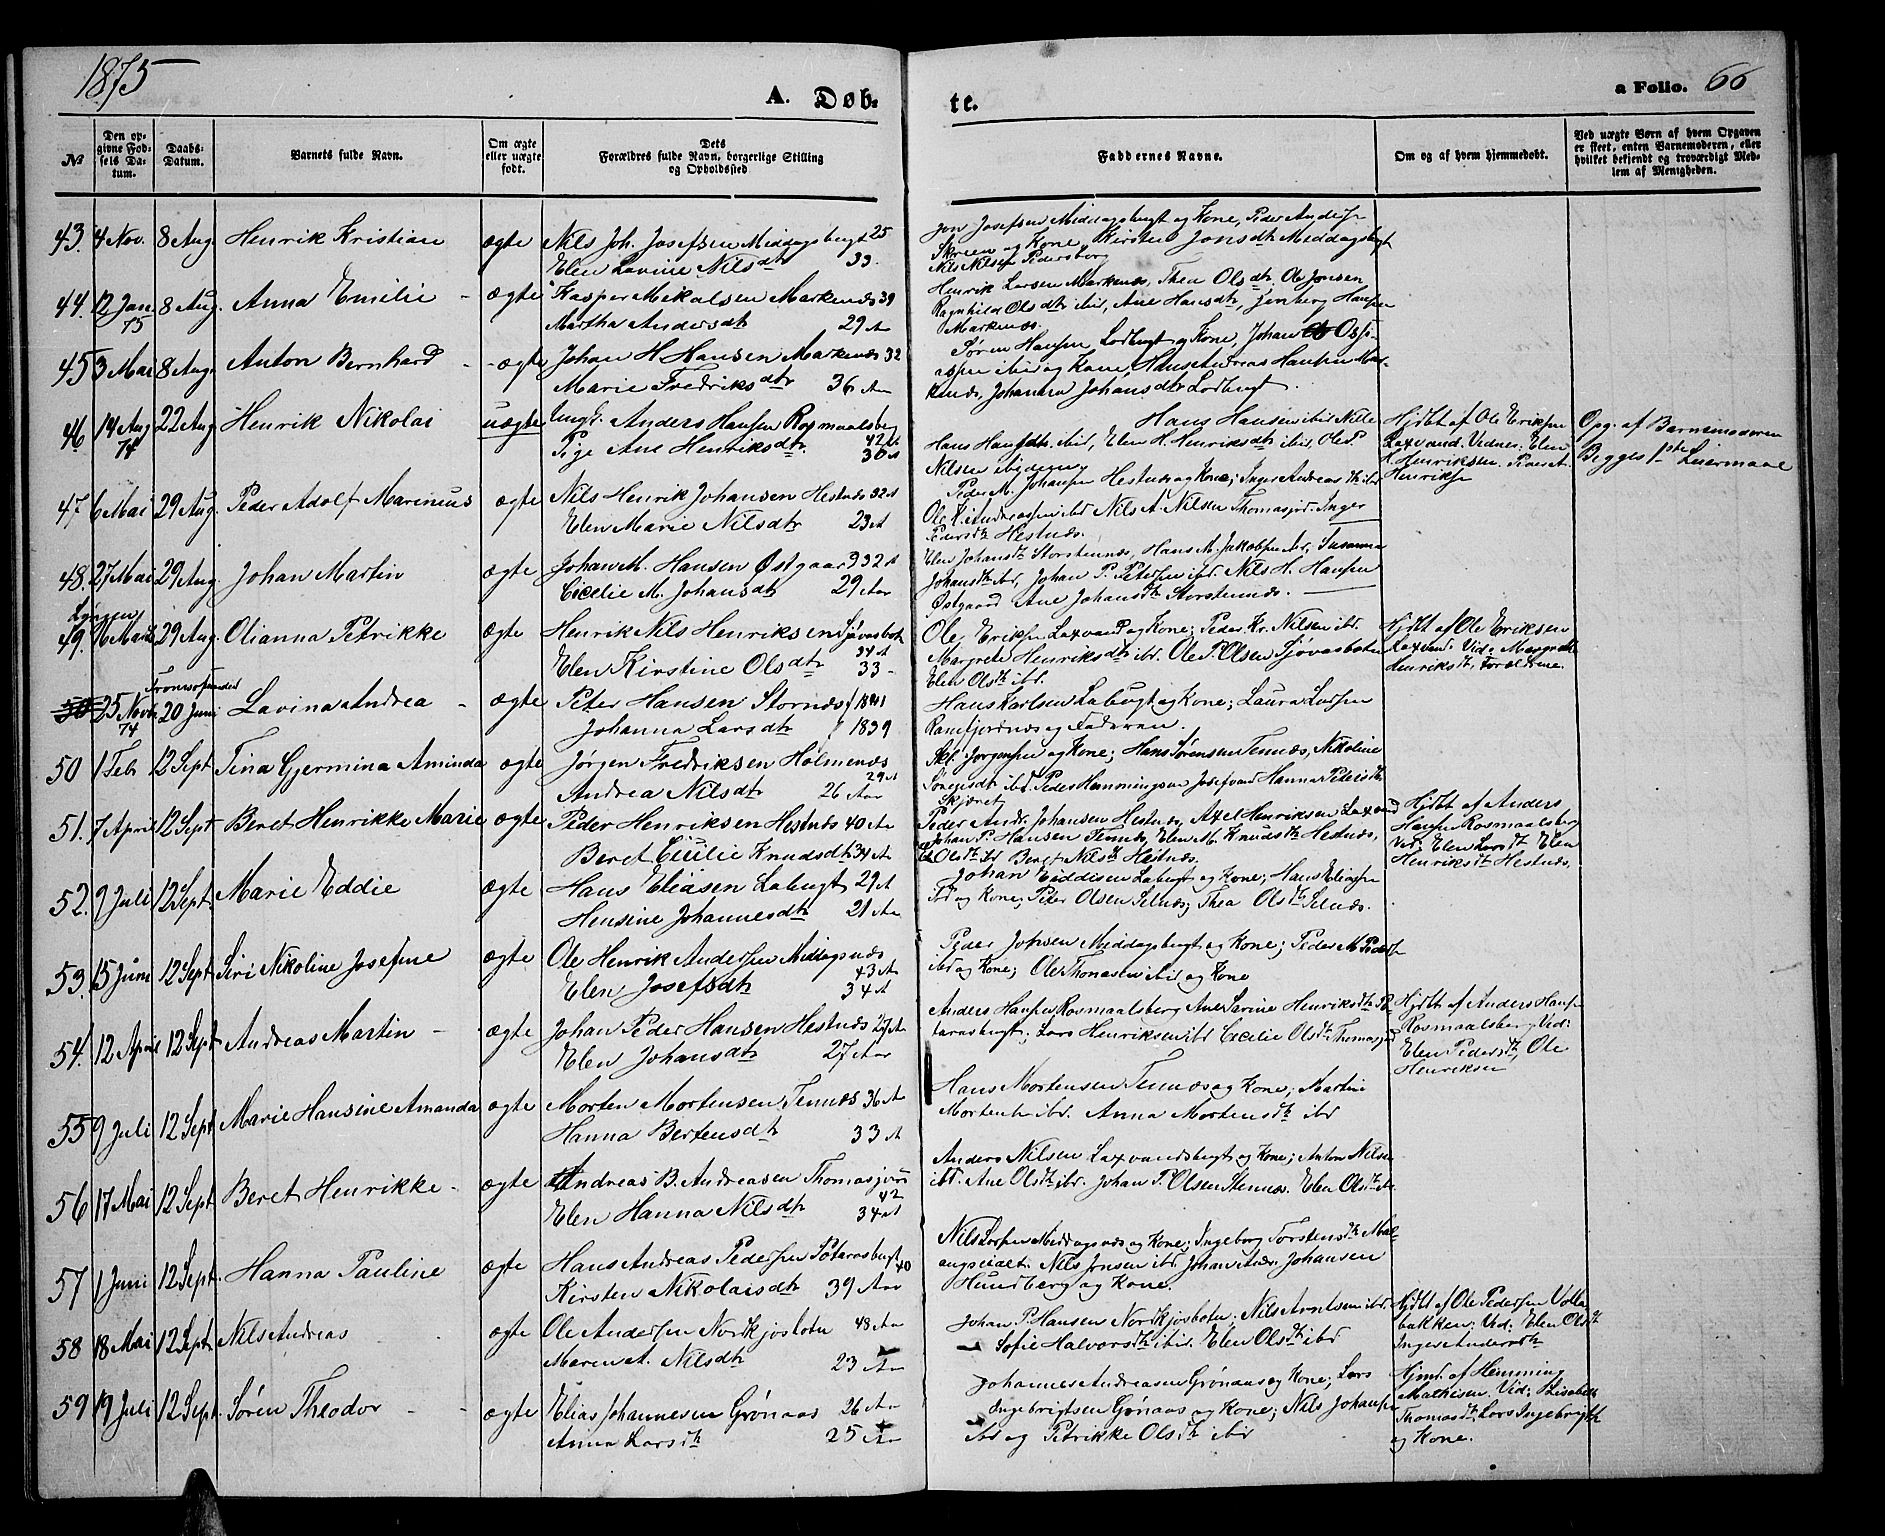 1875
A. Døb-
te.
a Folio. 66
No
Den op-
givne Fød-
sels Da-
tum.
Daabs-
Datum.
Barnets fulde Navn.
Om ægte
eller uægte
født.
Dets
Forældres fulde Navn, borgerlige Stilling
og Opholdssted
Faddernes Navne.
Om og af hvem hjemmedøbt.
Ved uægte Børn af hvem Opgaven
er skeet, enten Barnemoderen, eller
hvilket bekjendt og troværdigt Med-
lem af Menigheden.
43. 4 Nov. 8 Aug. Henrik Kristian ægte Nils Joh. Josefsen Middagsbugt 25
Elen Lavine Nilsdtr 33
Jon Josefsen Middagsbugt og Kone, Peder Anders
Skreen og Kone, Kirsten Jonsdtr Middagsbugt
Nils Nilsen Pedersborg
44. 12 Jan 75 8 Aug. Anna Emilie - ægte Kasper Mikalsen Markenæs 39
Martha Andersdtr 29 A
Henrik Larsen Markenæs, Thea Olsdtr, Ole Jonsen
Ragnhild Olsdtr ibid, Ane Hansdtr, Hansen
Markenæs.
45 3 Mai 8 Aug. Anton Bernhard - ægte Johan H Hansen Markenæs 32
Marie Fredriksdtr 36 Aa
Søren Hansen Lodbugt og Kone, Johan
ibid og Kone, Hans Andreas Hansen Mar-
kenæs, Johanna Johansdtr Lodbugt.
46. 14 Aug 74 22 Aug. Henrik Nikolai uægte Ungk. Anders Hansen Rosmaalsberg 42 A
Pige Ane Henriksdtr. 36 A
Hans Hansen ibid Nille
Hansdtr. ibid, Elen H. Henriksdtr ibid, Ole P.
Nilsen
Hjdbt af Ole Eriksen
Laxvand. Vidner: Elen
H. Henriksen. Peder A.
Henriksen
Opg. af Barnemoderen
Begges 1ste Leiermaal
47. 6 Mai 29 Aug. Peder Adolf Marinius ægte Nils Henrik Johansen Hestnæs 32 A
Elen Marie Nilsdtr 23 A
Peder M. Johansen Hestnæs og Kone; Inger Andreasdtr ibid
Ole K. Andreassen ibid Nils A. Nilsen Thomasjord. Inger
Pedersdtr Hestnæs.
48. 27 Mai 29 Aug. Johan Martin ægte Johan M. Hansen Østgaard 32 A
Cecelie M. Johansdtr 29 Aar
Elen Johansdtr Storstennæs, Hans M. Jakobsen ibid, Susanna
Johansdtr ibd, Johan P. Petersen ibd. Nils H. Hansen
Østgaard Ane Johansdtr Storstennæs.
Lyngen
49. Marts 29 Aug. Olianna Petrikke ægte Henrik Nils Henriksen Sjøvasbotn 34 A
Elen Kirstine Olsdtr 33 -
Ole Eriksen Laxvand og Kone; Peder Kr. Nilsen ibd.
Margrete Henriksdtr ibd. Ole P. Olsen Sjøvasboten
Elen Olsdtr ibd.
Hjdbt af Ole Eriksen
Laxvand. Vid: Margrethe
Henriksdtr, Forældrene.
Tromsøsundet
50 25 Novbr 74 20 Juni Lavina Andrea - ægte Peter Hansen Stornæs f 1841
Johanna Larsdtr f 1839
Hans Karlsen Labugt og Kone; Laura Larsen
Ramfjordnæs og Faderen.
50 1 Feb 12 Sept Tina Gjermina Aminda ægte Jørgen Fredriksen Holmenæs 29 A
Andrea Nilsdtr 26 Aar
Jørgensen og Kone; Hans Sørensen Tennæs, Nikoline
Sørensdt ibd. Peder Hemmingsen Josefvand Hanna Pedersdtr
Skjønet
51. 7 April 12 Sept Beret Henrikke Marie ægte Peder Henriksen Hestnæs 40 Aa
Beret Cecilie Knudsdtr 34 A
Peder Andr. Johansen Hestnæs, Axel Henriksen Laxvand
Johan P. Hansen Tennæs, Elen M. Knudsdtr Hestnæs,
Olsdtr ibd Beret Nilsdtr Hestnæs.
Hjdbt af Anders
Hansen Rosmaalsberg
Vid: Elen Larsdtr Elen
Henriksdtr Hestnæs.
52. 9 Juli 12 Sept. Marie Eddie ægte Hans Eliasen Labugt 29 A
Hensine Johannesdtr 21 Aa
Johan Eddisen Labugt og Kone; Hans Eliassen
ibd og Kone, Peder Olsen Selnæs; Thea Olsdtr Selnæs.
53. 15 Juni 12 Sept Siri Nikoline Josefine ægte Ole Henrik Andersen Middagsnæs 43 A
Elen Josefsdtr 34 A
Peder Johsen Middagsbugt og Kone; Peder M. Peders
ibd og Kone; Ole Thomasen ibid og Kone
54. 12 April 12 Sept Andreas Martin - ægte Johan Peder Hansen Hestnæs 27 A
Elen Johansdtr 27 Aar
Anders Hansen Rosmaalsberg Ane Sarine Henriksdtr Sø-
tarasbugt; Lars Henriksen ibd Cecilie Olsdtr Thomasjord
Hjdbt af Anders Hansen
Rosmaalsberg Vid:
Elen Pedersdtr, Ole
Henriksen
55 9 Juli 12 Sept Marie Hansine Amanda ægte Morten Mortensen Tennæs 36 A
Hanna Bertensdtr 33 A
Hans Mortensen Tennæs og Kone; Martin
Mortensen ibd. Anna Mortensdtr ibd
56 17 Mai 12 Sept Beret Henrikke - ægte Andreas B. Andreasen Thomasjord 42
Elen Hanna Nilsdtr 34 A
Anders Nilsen Laxvandsbugt og Kone; Anton Nilsen
ibd. Ane Olsdtr ibd. Johan P. Olsen Stennæs. Elen Olsdtr ibd.
57 1 Juni 12 Sept. Hanna Pauline ægte Hans Andreas Pedersen Søtarasbugt 40
Kirsten Nikolaisdtr 39 Aar
Nils Larsen Middagsnæs og Kone; Ingeborg Torstensdtr Mal-
angseidet. Nils Jensen ibd Johan Andr. Johansen
Hundberg og Kone.
58 18 Mai 12 Sept Nils Andreas ægte Ole Andersen Nordkjosboten 48 Aa
Maren A. Nilsdtr 23 Aa
Johan P. Hansen Nordkjosboten, Nils Arntsen ibd.
Sofie Halvorsdtr ibid. Elen Olsdtr ibd
Hjdbt af Ole Pedersen Volla-
bakken; Vid: Elen Olsdtr
Inger Andersdtr
59 19 Juli 12 Sept. Søren Theodor - - ægte Elias Johannesen Grønaas 26 Aa
Anna Larsdtr 25 Aa
Johannes Andreasen Grønaas og Kone; Lars
Ingebrigtsen Grønaas og Kone; Nils Johansen
ibd og Petrikke Olsdtr ibd
Hjmd. af Hemming
Mathisen. Vid: Elisabeth
Thomasdtr, Lars Ingebrigts
og Kone.